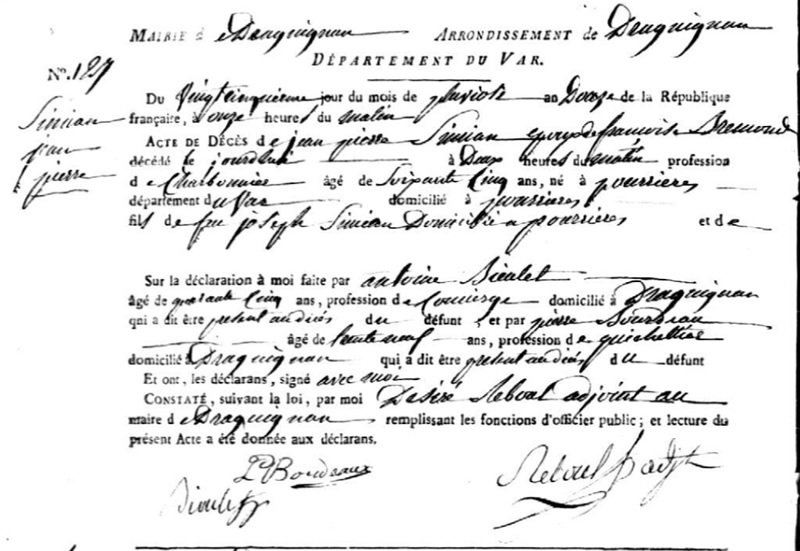 MAIRIE de Draguignan ARRONDISSEMENT de Draguignan
DÉPARTEMENT DU VAR.
N.º 127
Simian
jean
pierre
Du Vingtcinquieme jour du mois de pluviose an Douze de la République
française, à onze heures du matin
ACTE DE DÉCÈS de jean pierre Simian epoux de francoise Bremond
décédé le jourdhui à Deux heures du matin profession
de Charbonnier âgé de Soixante Cinq ans, né à pourrieres
département du Var domicilié à pourrieres
fils de feu joseph Simian Domicilié a pourrieres et de
Sur la déclaration à moi faite par antoine Sioulet
âgé de quarante Cinq ans, profession de Concierge domicilié à Draguignan
qui a dit être present au décès du défunt, et par pierre Bourdeau
âgé de trente neuf ans, profession de guichettier
domicilié à Draguignan qui a dit être present au décès du défunt
Et ont, les déclarans, signé avec moi
CONSTATÉ, suivant la loi, par moi Desiré Reboul adjoint au
maire de Draguignan remplissant les fonctions d'officier public; et lecture du
présent Acte a été donnée aux déclarans.
P Bordeaux
Reboul adjt